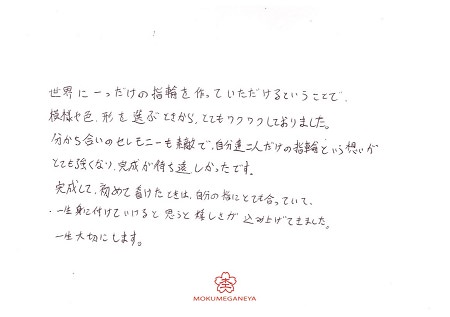 世界に一つだけの指輪を作っていただけるということで、
模様や色、形を選ぶときから、とてもワクワクしておりました。
分かち合いのセレモニーも素敵で、自分達二人だけの指輪という想いが
とても強くなり、完成が待ち遠しかったです。
完成して、初めて着けたときは、自分の指にとても合っていて、
一生身に付けていけると思うと嬉しさが込み上げてきました。
一生大切にします。
杢
MOKUMEGANEYA